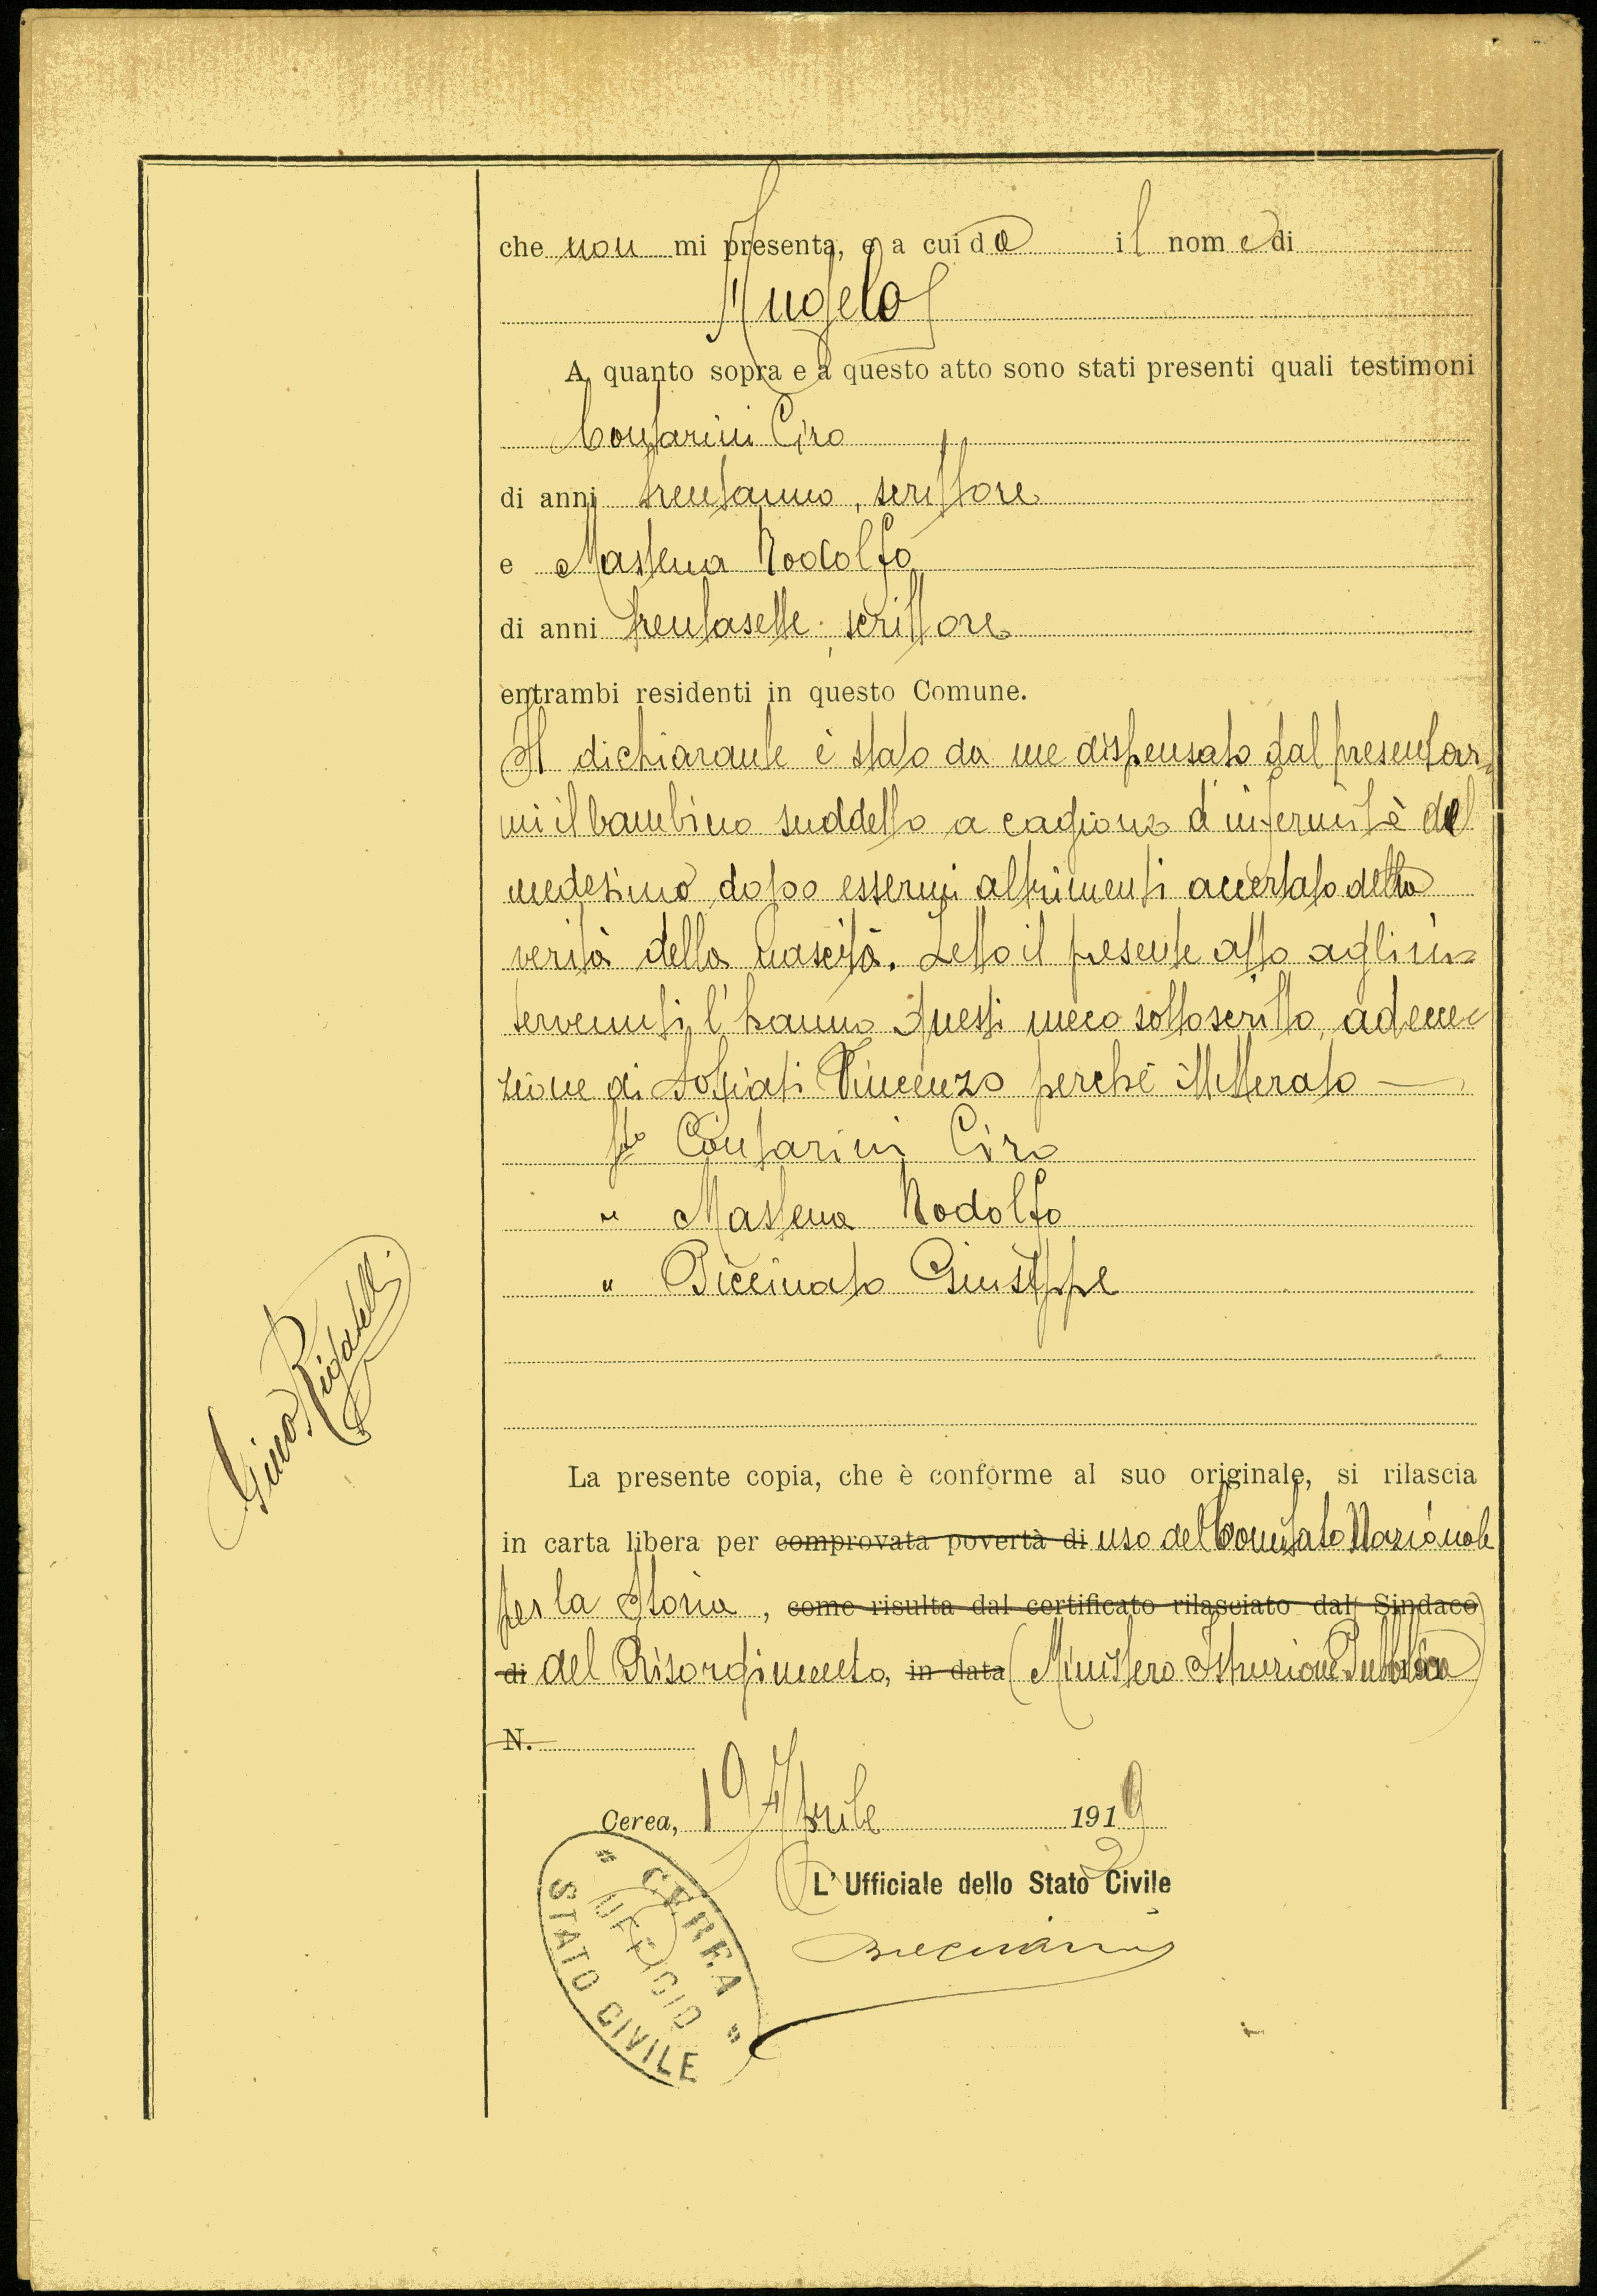 che non mi presenta, e a cui dà il nome di
Angelo
A quanto sopra e a questo atto sono stati presenti quali testimoni
Contarini Ciro
di anni trentanno, scrittore
e Mastena Rodolfo
di anni trentasette, scrittore
entrambi residenti in questo Comune.
Il dichiarante è stato da me dispensato dal presentar-
mi il bambino suddetto a cagione d'infermità del
medesimo dopo essermi altrimenti accertato della
verità della nascita. Letto il presente atto agli in-
tervenuti, l'hanno questi meco sottoscritto, ad ecce-
zione di Vincenzo perchè illetterato
fto Contarini Ciro
" Mastena Rodolfo
" Piccinato Giuseppe
Gino Rigatelli
La presente copia, che è conforme al suo originale, si rilascia
in carta libera per comprovata povertà di uso del Comitato Nazionale
per la Storia, come risulta dal certificato rilasciato dal Sindaco
di del Risorgimento, in data (Ministero Istruzione Pubblica)
N.
Cerea, 19 Aprile 1919
L'Ufficiale dello Stato Civile
" CEREA "
UFFICIO
STATO CIVILE